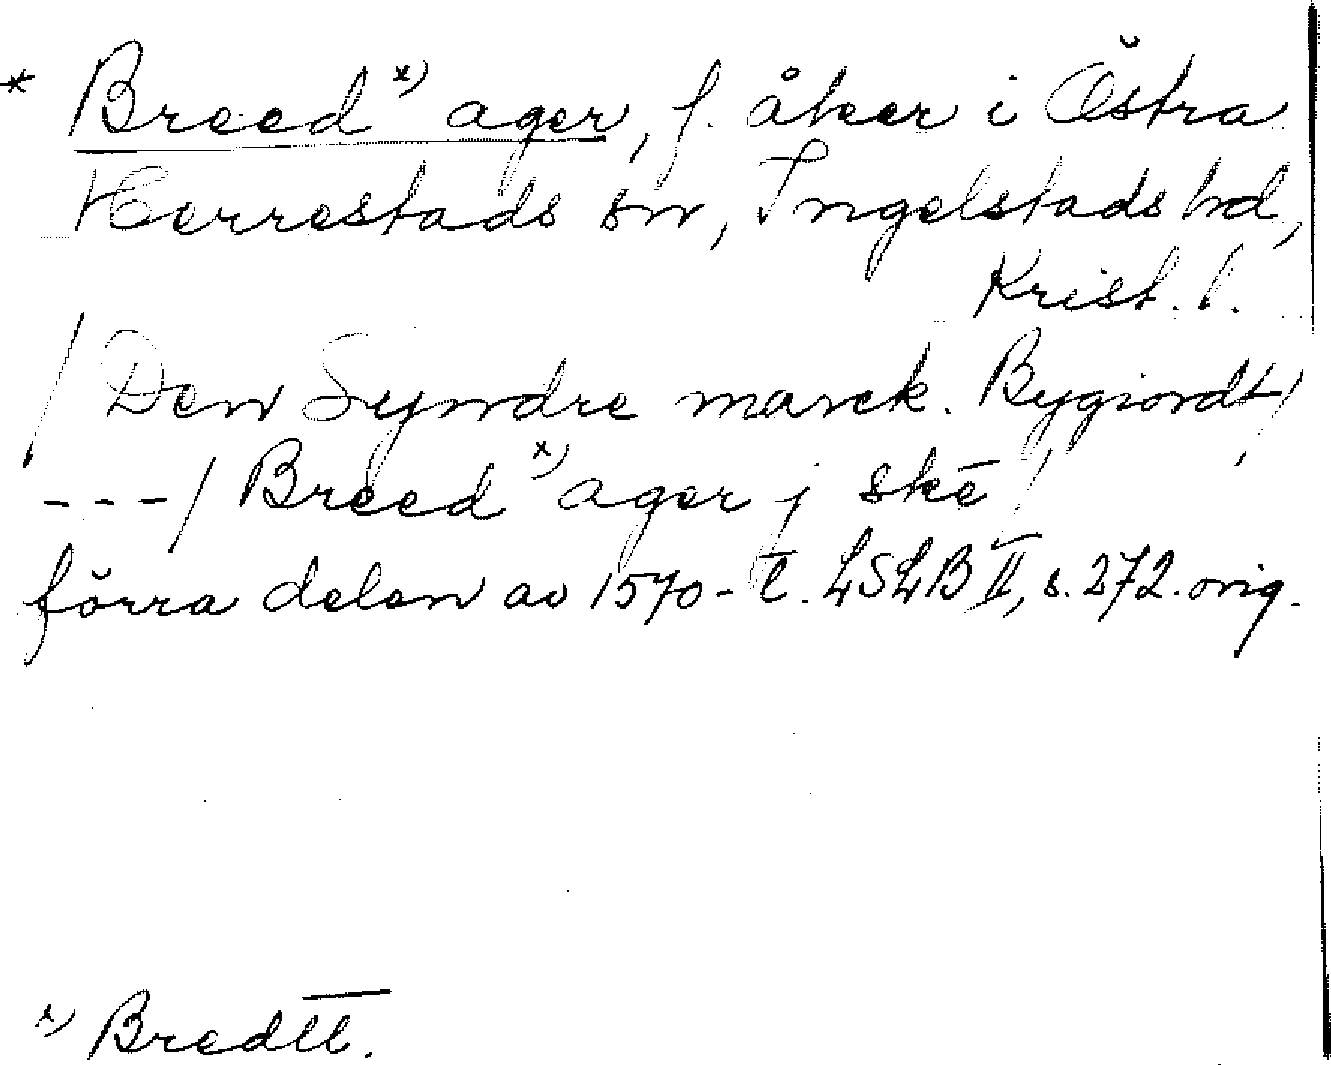 * Breed x) ager, f. åker i Östra
Herrestads sn, Ingelstads hd,
Krist. l.
/ Den Syndre marck. Bygiordt /,
---/ Breed x) ager j skē /
förra delen av 1570-t. LSLB II, s. 272. orig.
x) Bred